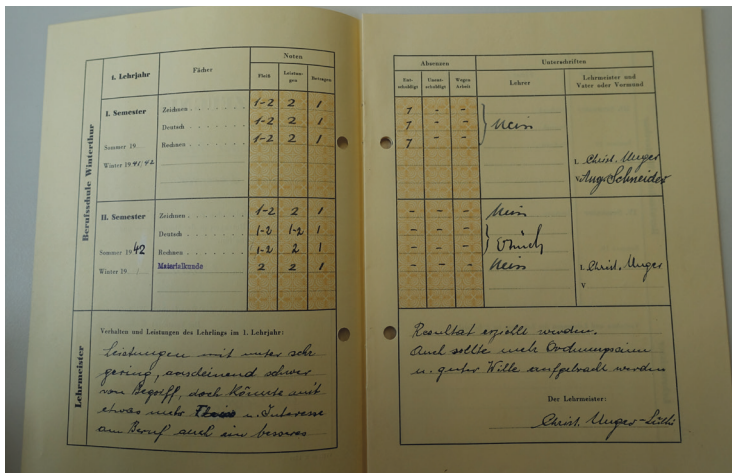 Berufsschule Winterthur
I. Lehrjahr Fächer Noten
Fleiß Leistungen Betragen
I. Semester
Zeichnen 1-2 2 1
Deutsch 1-2 2 1
Sommer 19 Rechnen 1-2 2 1
Winter 1941/42
II. Semester
Zeichnen 1-2 2 1
Deutsch 1-2 1-2 1
Sommer 1942 Rechnen 1-2 2 1
Winter 19 Materialkunde 2 2 1
Lehrmeister
Verhalten und Leistungen des Lehrlings im 1. Lehrjahr:
Leistungen mit unter sehr
gering, anscheinend schwer
von Begriff, doch könnte mit
etwas mehr Fleiss u. Interesse
am Beruf auch ein besseres
Absenzen Unterschriften
Entschuldigt Unentschuldigt Wegen Arbeit Lehrer Lehrmeister und
Vater oder Vormund
7 - -
7 - -
7 - -
L Christ. Unger
V Aug. Schneider
- - -
- - -
- - -
- - -
L Christ. Unger
V
Resultat erziehlt werden.
Auch sollte mehr Ordnungssinn
u. guter Wille aufgebracht werden
Der Lehrmeister:
Christ. Unger-Lüthi